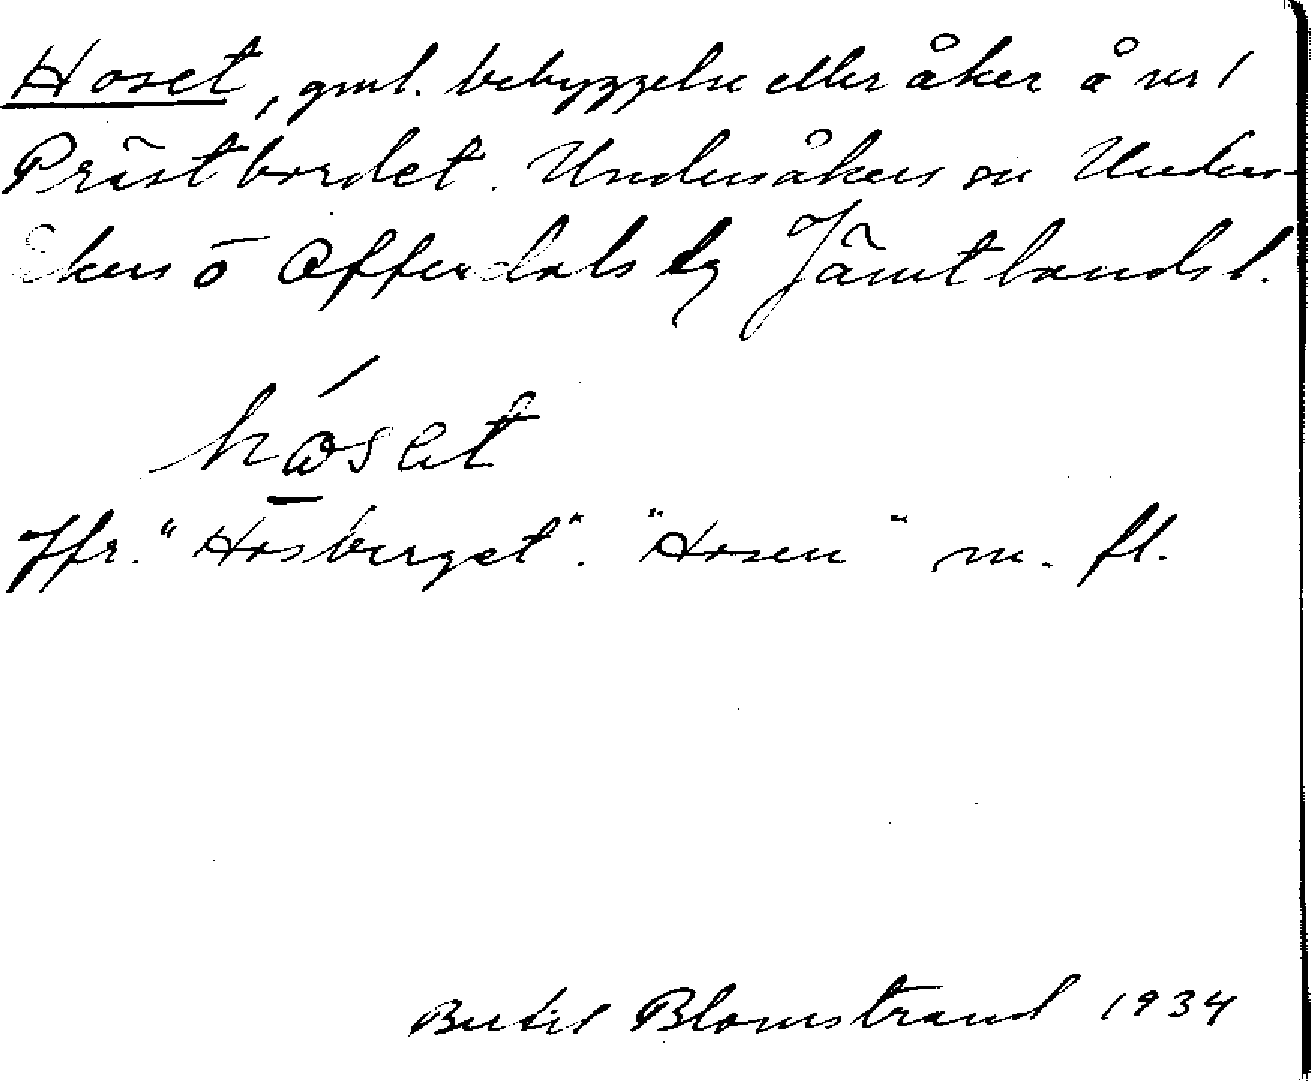 Hoset, gml. bebyggelse eller åker å nr 1
Prästbordet. Undersåkers sn Unders-
åkers o Offerdals tg Jämtlands l.
hóset
Jfr. "Hosberget". "Hosen" m. fl.
Bertil Blomstrand 1934